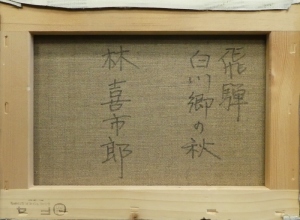 飛騨
白川郷の秋
林喜市郎